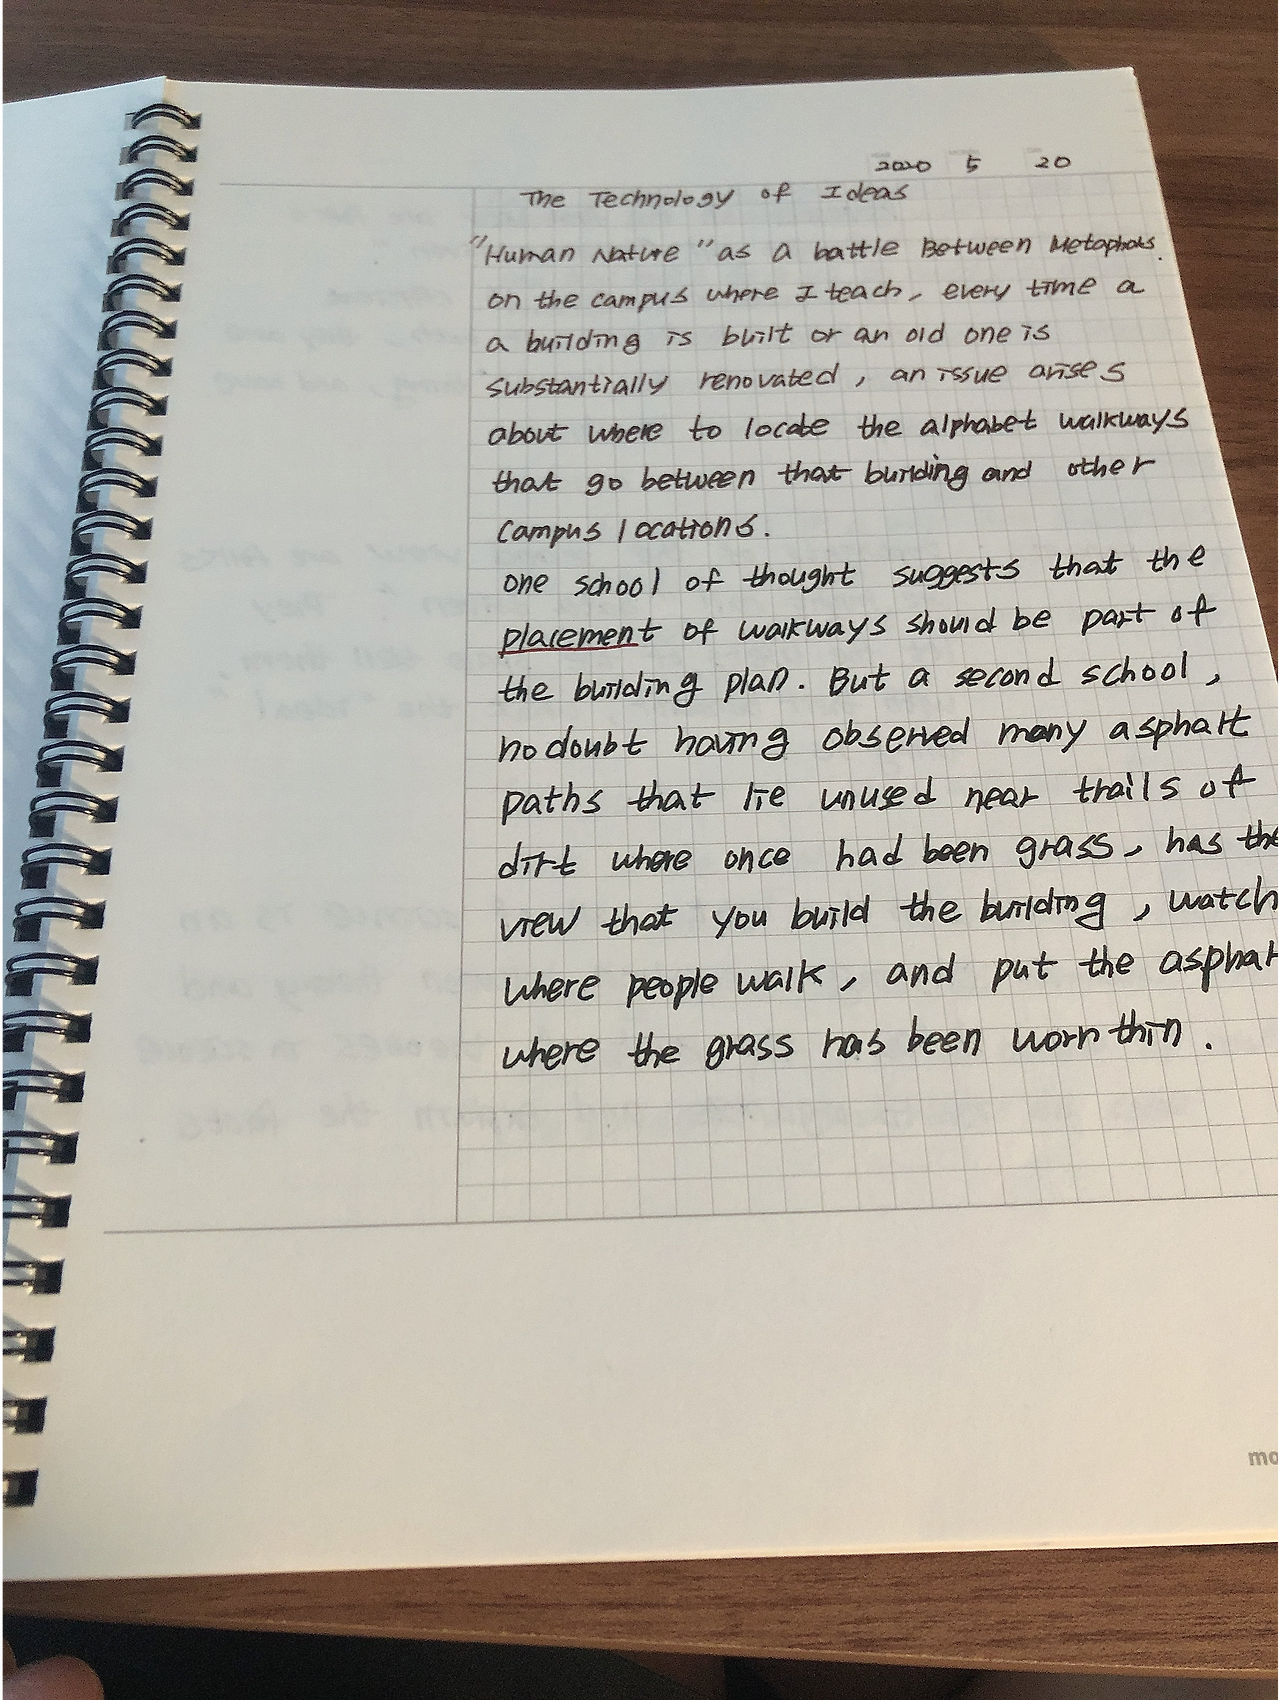 2020 5 20
The Technology of Ideas
"Human Nature" as a battle Between Metaphors.
on the campus where I teach, every time a
a building is built or an old one is
substantially renovated, an issue arises
about where to locate the alphabet walkways
that go between that building and other
campus locations.
one school of thought suggests that the
placement of walkways should be part of
the building plan. But a second school,
no doubt having observed many asphalt
paths that lie unused near trails of
dirt where once had been grass, has the
view that you build the building, watch
where people walk, and put the asphal
where the grass has been worn thin.
mo